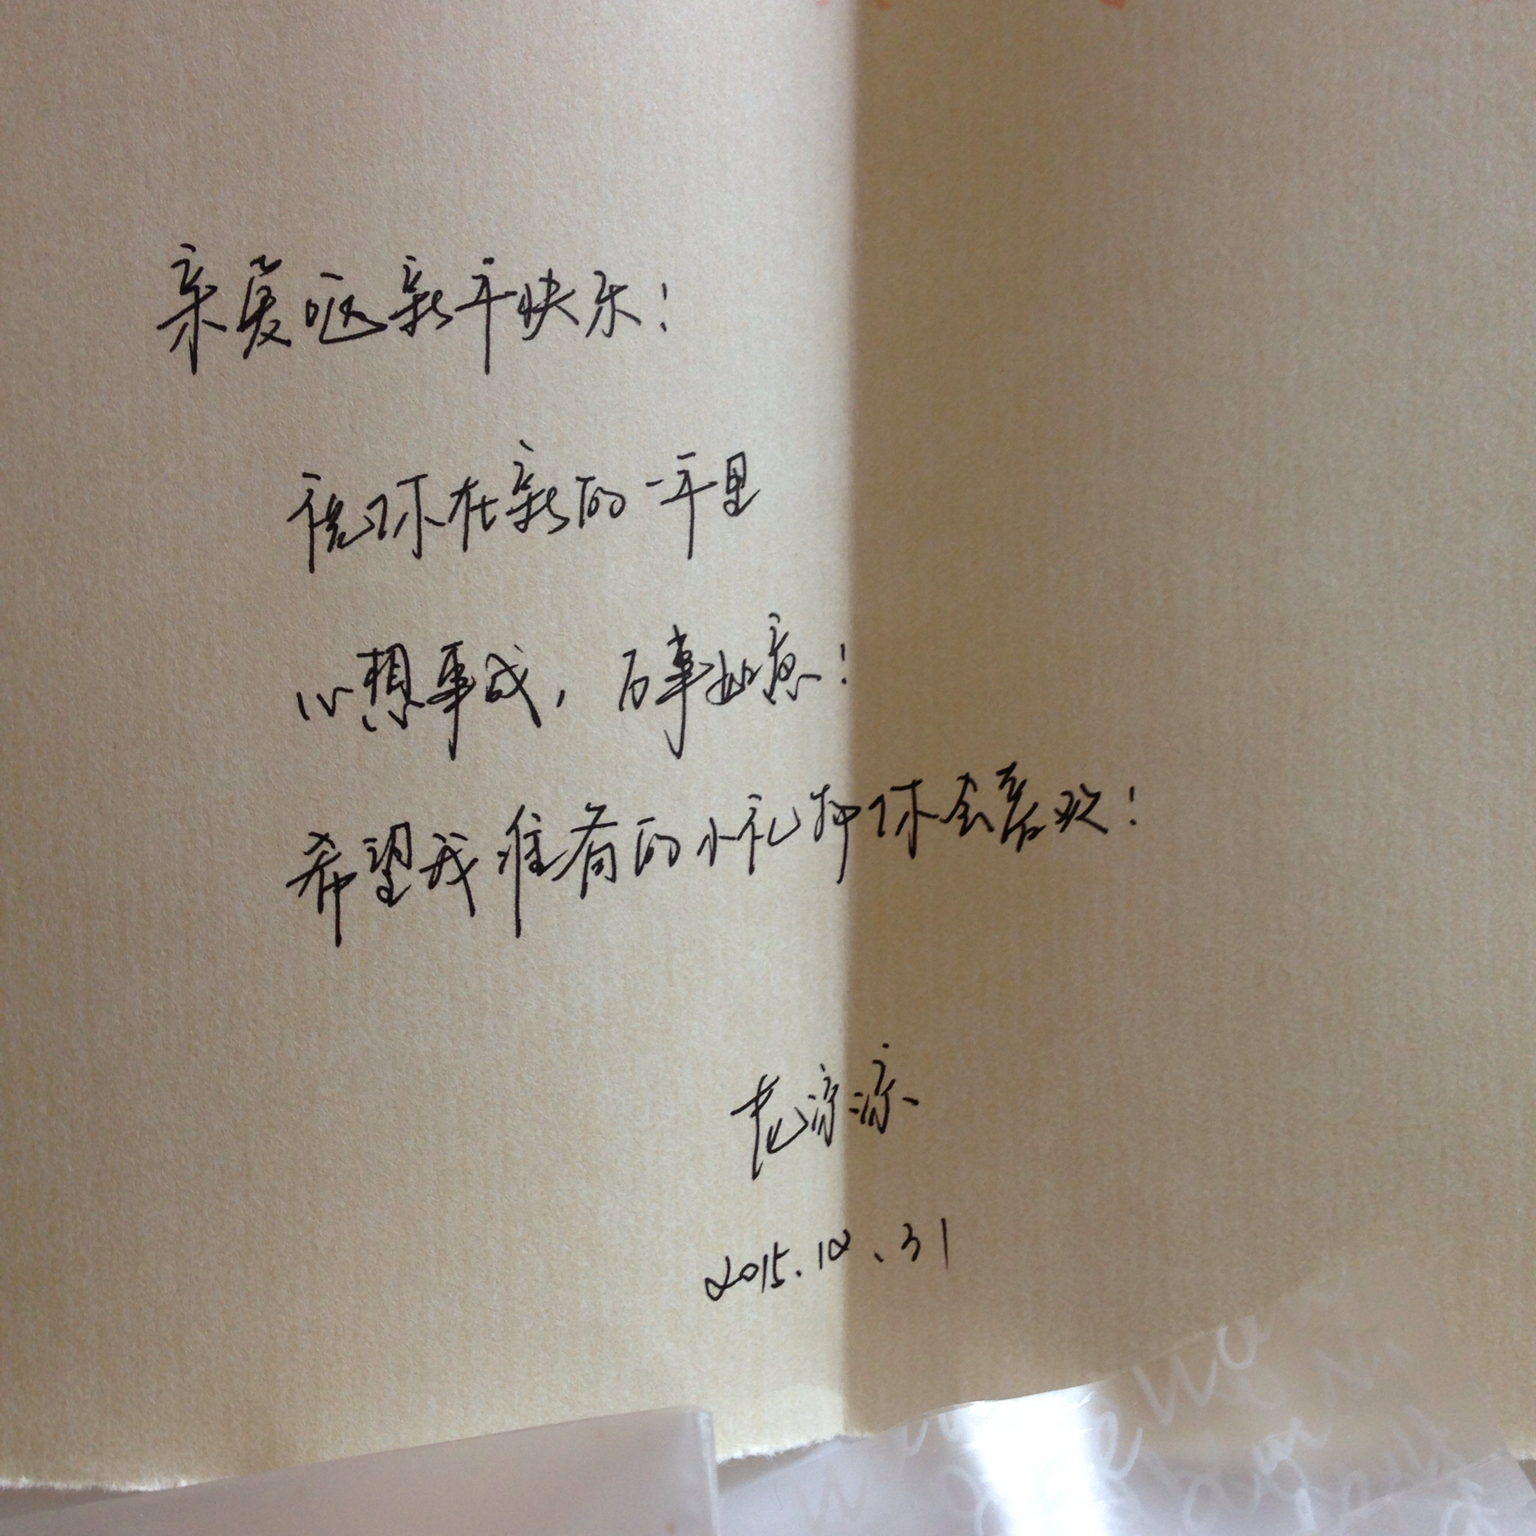 亲爱哒新年快乐！
祝你在新的一年里
心想事成，万事如意！
希望我准备的小礼物你会喜欢！
老凉凉
2015.12.31